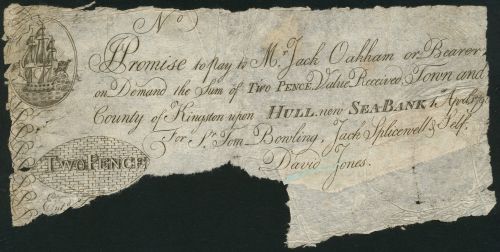 No
I Promise to pay to Mr. Jack Oakham or Bearer
on Demand the Sum of TWO PENCE Value Received Town and
County of Kingston upon HULL new SEA-BANK 1 April
For Sr. Tom Bowling, Jack Splicewell & Self.
David Jones.
TWO PENCE
Entd